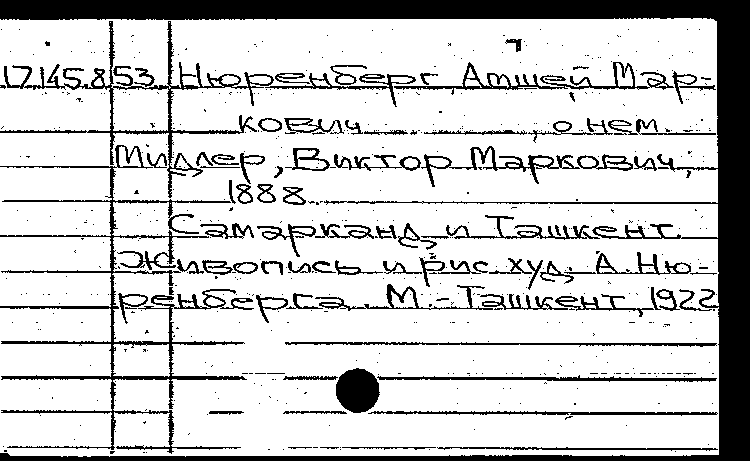 17.145.853 Нюренберг, Амшей Мар-
кович, о нем.
Миллер, Виктор Маркович,
1888
Самарканд и Ташкент.
Живопись и рис. худ. А. Ню-
ренберга. М.-Ташкент, 1922